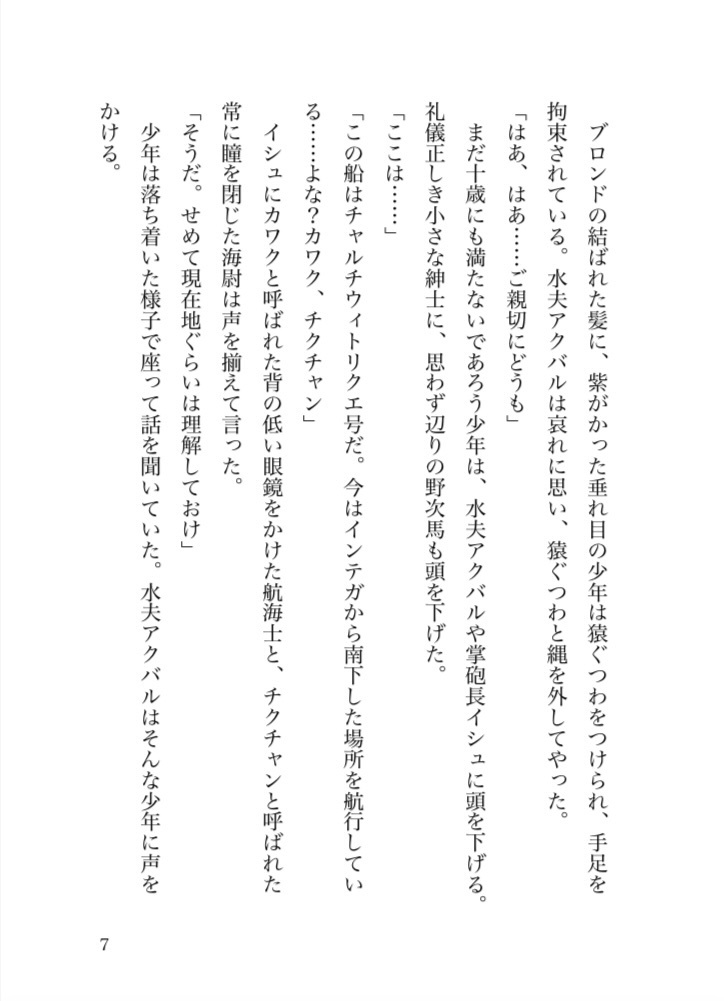 ブロンドの結ばれた髪に、紫がかった垂れ目の少年は猿ぐつわをつけられ、手足を
拘束されている。水夫アクバルは哀れに思い、猿ぐつわと縄を外してやった。
「はあ、はあ……ご親切にどうも」
まだ十歳にも満たないであろう少年は、水夫アクバルや掌砲長イシュに頭を下げる。
礼儀正しき小さな紳士に、思わず辺りの野次馬も頭を下げた。
「ここは……」
「この船はチャルチウィトリクエ号だ。今はインテガから南下した場所を航行してい
る……よな？カワク、チクチャン」
イシュにカワクと呼ばれた背の低い眼鏡をかけた航海士と、チクチャンと呼ばれた
常に瞳を閉じた海尉は声を揃えて言った。
「そうだ。せめて現在地ぐらいは理解しておけ」
少年は落ち着いた様子で座って話を聞いていた。水夫アクバルはそんな少年に声を
かける。
7